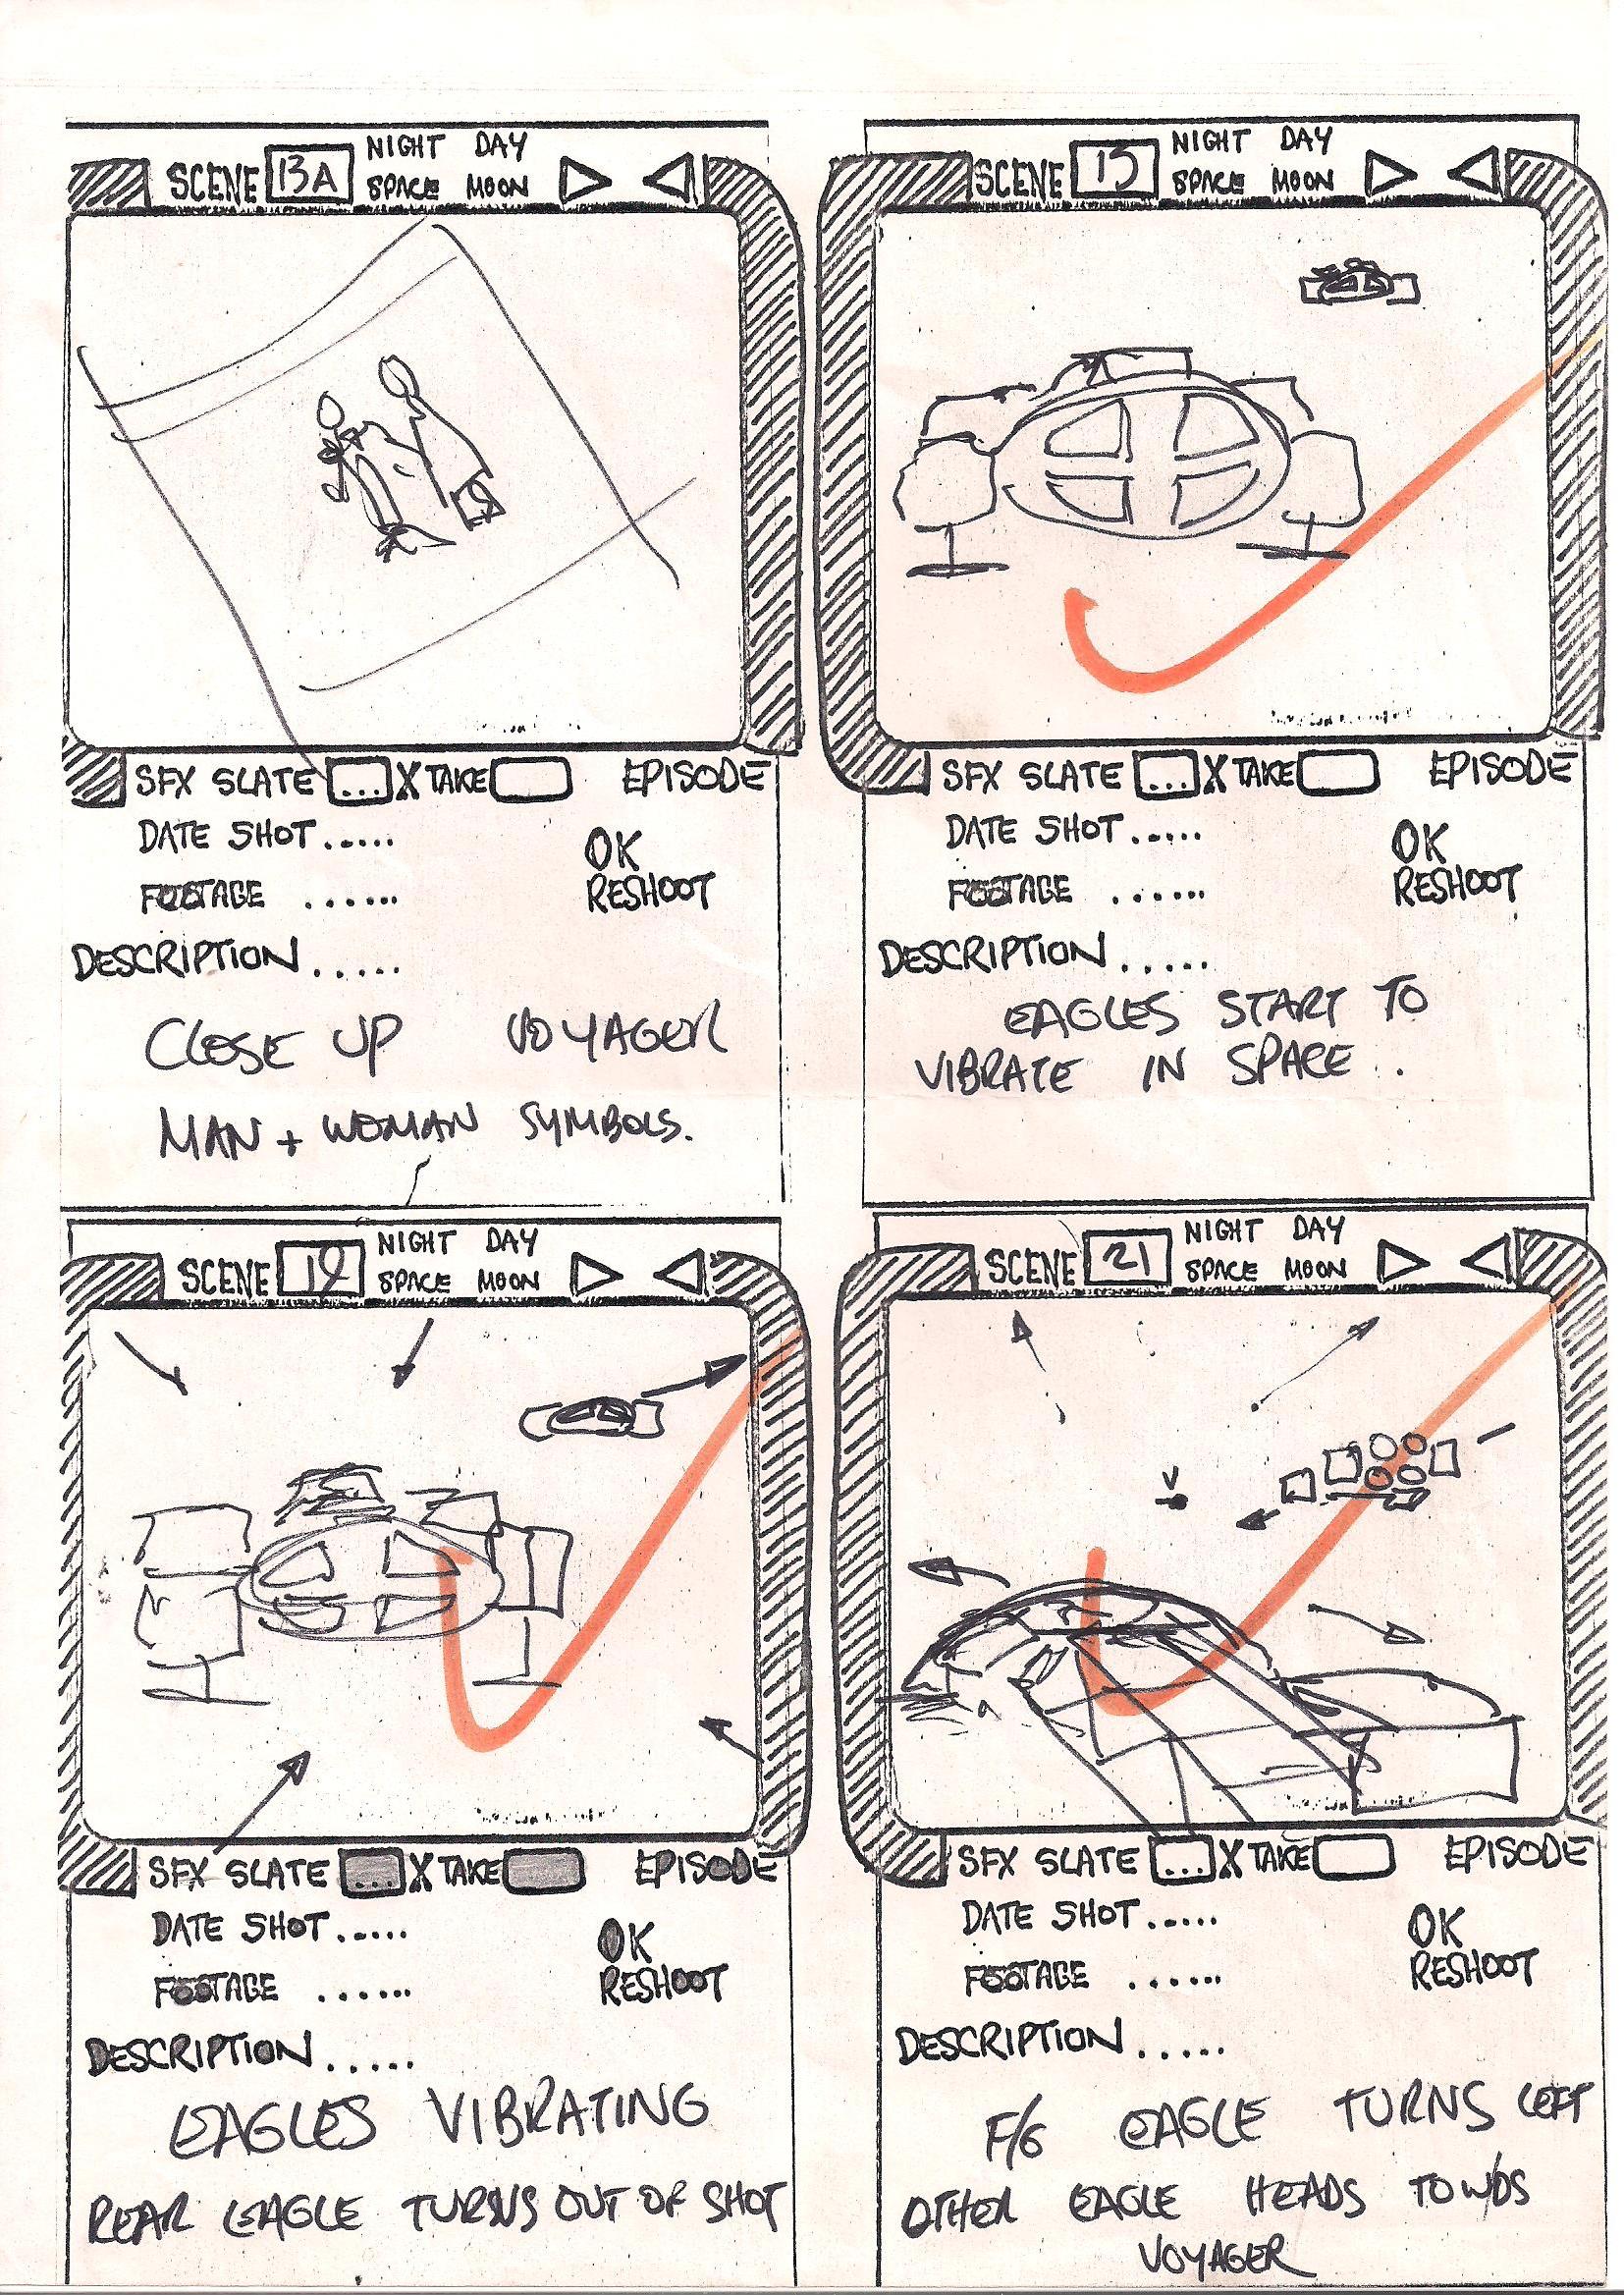 SCENE 13A NIGHT DAY
SPACE MOON
SFX SLATE ... X TAKE EPISODE
DATE SHOT ..... OK
FOOTAGE ...... RESHOOT
DESCRIPTION .....
CLOSE UP VOYAGER
MAN + WOMAN SYMBOLS.
SCENE 15 NIGHT DAY
SPACE MOON
SFX SLATE ... X TAKE EPISODE
DATE SHOT ..... OK
FOOTAGE ...... RESHOOT
DESCRIPTION .....
EAGLES START TO
VIBRATE IN SPACE ..
SCENE 19 NIGHT DAY
SPACE MOON
SFX SLATE ... X TAKE EPISODE
DATE SHOT ..... OK
FOOTAGE ...... RESHOOT
DESCRIPTION .....
EAGLES VIBRATING
REAR EAGLE TURNS OUT OF SHOT
SCENE 21 NIGHT DAY
SPACE MOON
V
SFX SLATE ... X TAKE EPISODE
DATE SHOT ..... OK
FOOTAGE ...... RESHOOT
DESCRIPTION .....
F/G EAGLE TURNS LEFT
OTHER EAGLE HEADS TOW/DS
VOYAGER